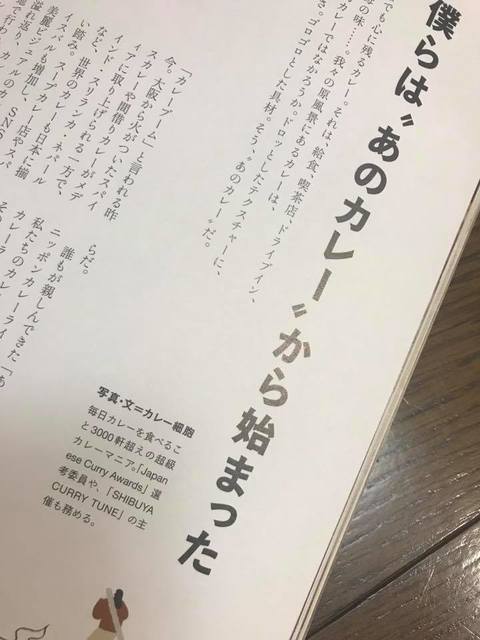 僕らは〝あのカレー〟から始まった
でも心に残るカレー。それは、給食、喫茶店、ドライブイン、
母の味……。我々の原風景にあるカレーは、
カレーではなかろうか。ドロッとしたテクスチャーに、
さ。ゴロゴロとした具材。そう、〝あのカレー〟だ。
「カレーブーム」と言われる昨
今。大阪から火がついたスパイ
スカレーや間借りカレーがメデ
ィアに取り上げられる一方で、
インド・スリランカ・ネパール
など、世界のカレーも日本に揃
い踏み。スープカレー店やスパ
イスバル
美麗ビジュアルの
溢れ返り、SNS
らだ。
誰もが親しんできた「あ
ニッポンカレーライ
私たちのカレー
カレーラ
写真・文＝カレー細胞
毎日カレーを食べるこ
と3000軒超えの超級
カレーマニア。「Japan
ese Curry Awards」選
考委員や、「SHIBUYA
CURRY TUNE」の主
催も務める。